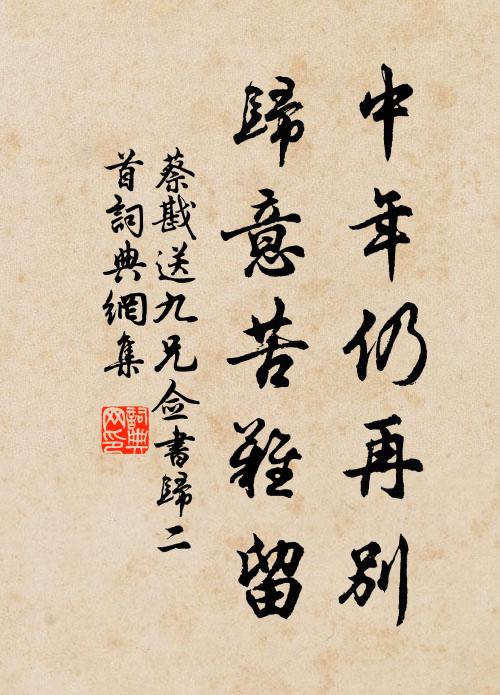 中年仍再別
歸意苦難留
蔡戡送九兄僉書歸二
首詞典網集
詞典网印